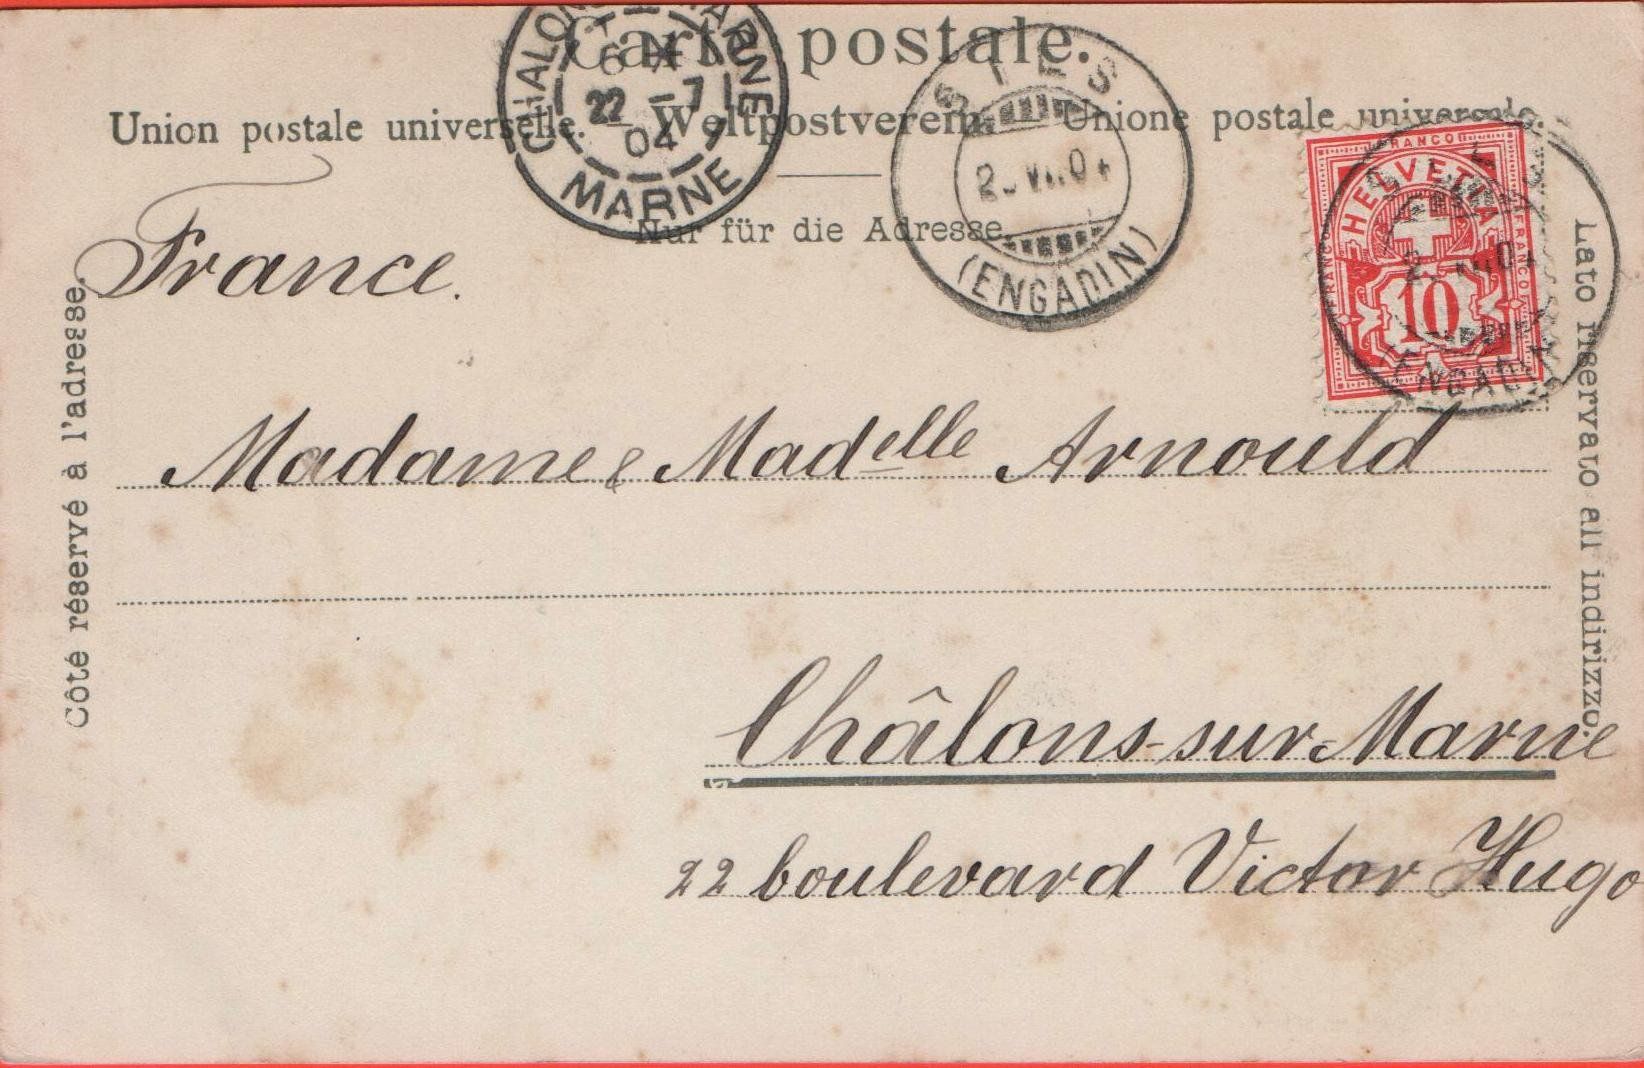 Carte postale.
Union postale universelle. – Weltpostverein. – Unione postale universale.
Nur für die Adresse.
Côté réservé à l'adresse.
Lato riservato all indirizzo.
MARNE
6
22 -7
04
MARNE
(ENGADIN)
FRANCO
HELVETIA
FRANCO
FRANCO
10
(ENGADIN)
France.
Madame & Madelle Arnould
Châlons-sur-Marne
22 boulevard Victor Hugo